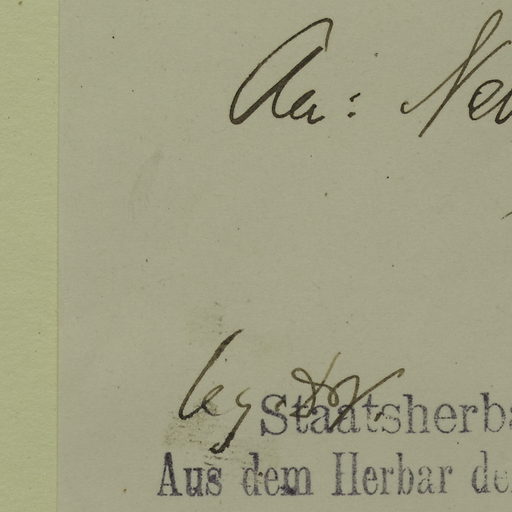 Aa: Ne
leg.
Staatsherb
Aus dem Herbar de